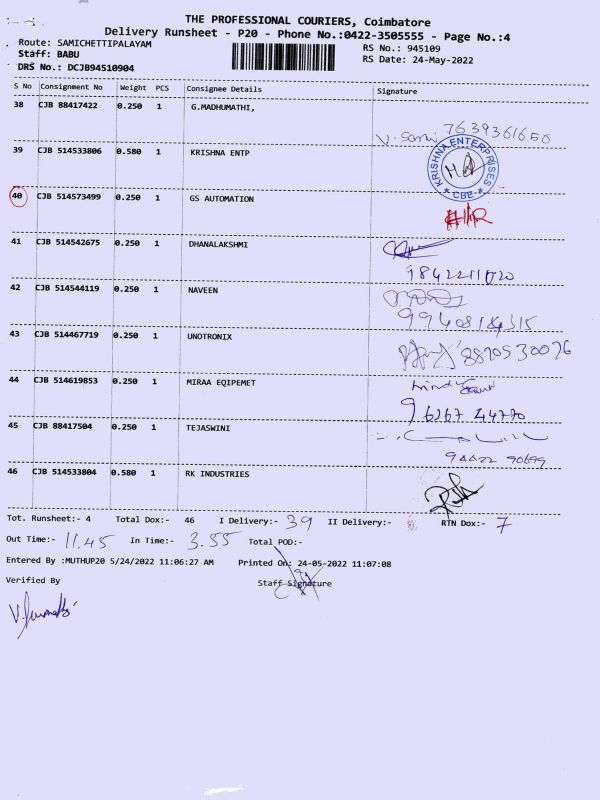 THE PROFESSIONAL COURIERS, Coimbatore
Delivery Runsheet - P20 - Phone No.:0422-3505555 - Page No.:4
Route: SAMICHETTIPALAYAM RS No.: 945109
Staff: BABU RS Date: 24-May-2022
DRS No.: DCJB94510904
S No Consignment No Weight PCS Consignee Details Signature
38 CJB 88417422 0.250 1 G.MADHUMATHI,
7639361650
39 CJB 514533806 0.580 1 KRISHNA ENTP
KRISHNA ENTERPRISES
★ CBE ★
40 CJB 514573499 0.250 1 GS AUTOMATION
41 CJB 514542675 0.250 1 DHANALAKSHMI
42 CJB 514544119 0.250 1 NAVEEN
43 CJB 514467719 0.250 1 UNOTRONIX
8870530076
44 CJB 514619853 0.250 1 MIRAA EQIPEMET
45 CJB 88417504 0.250 1 TEJASWINI
46 CJB 514533804 0.580 1 RK INDUSTRIES
Tot. Runsheet:- 4 Total Dox:- 46 I Delivery:- 39 II Delivery:- RTN Dox:- 7
Out Time:- 11.45 In Time:- 3.55 Total POD:-
Entered By :MUTHUP20 5/24/2022 11:06:27 AM Printed On: 24-05-2022 11:07:08
Verified By Staff Signature